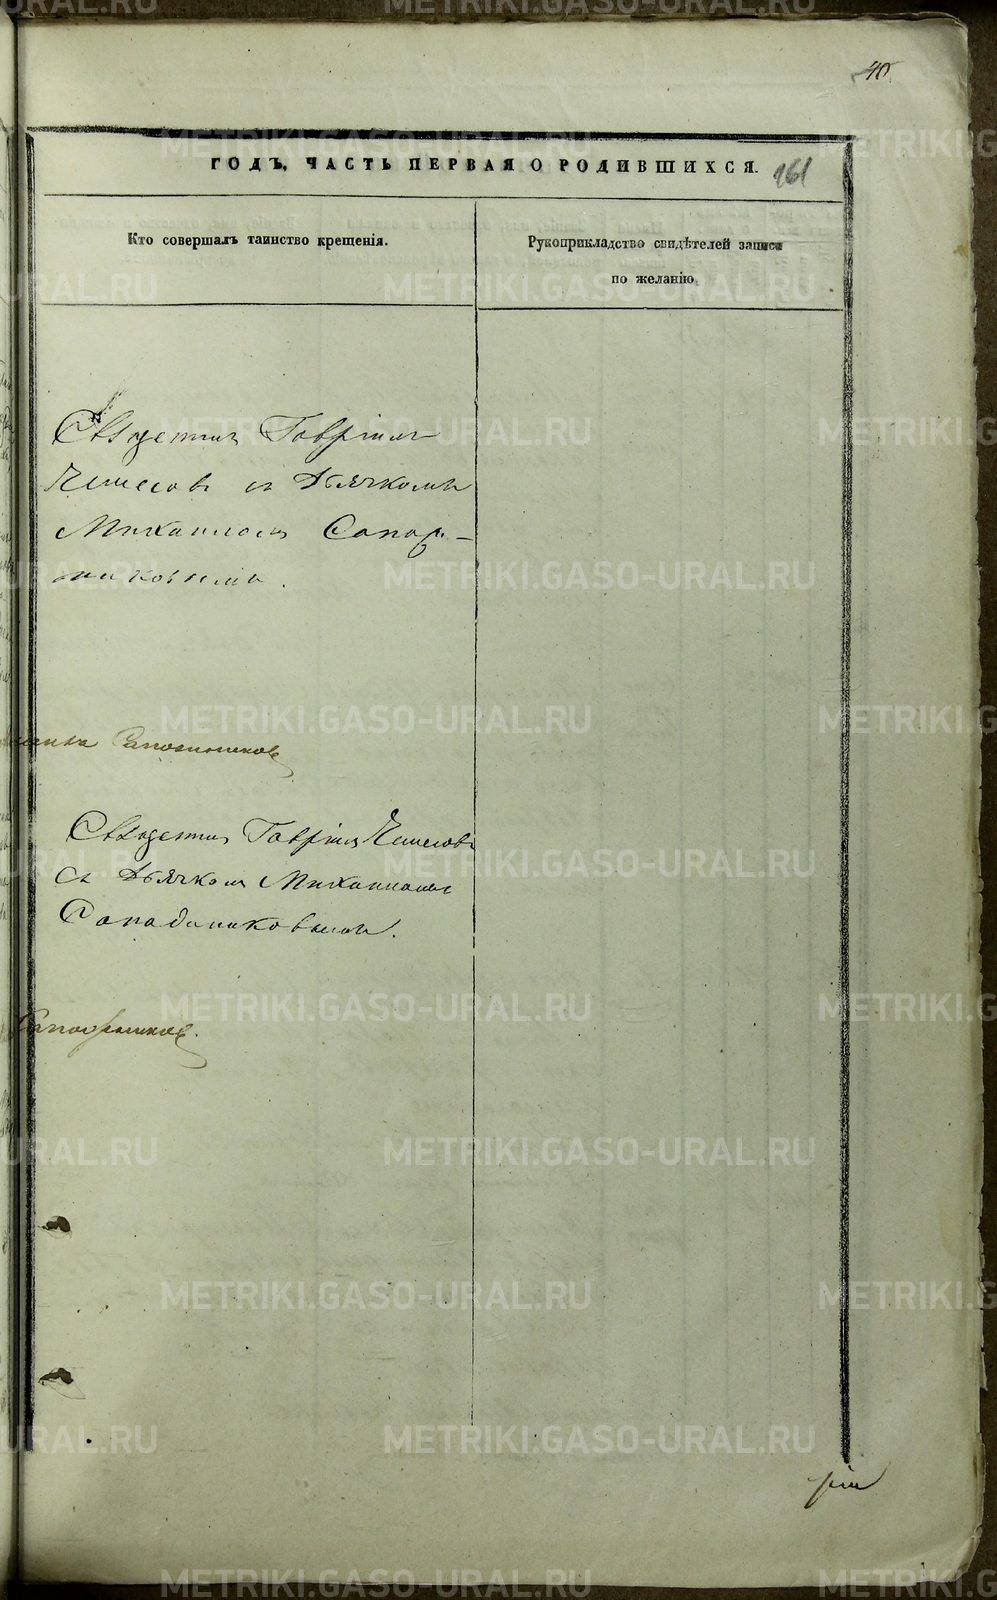 40
ГОДЪ, ЧАСТЬ ПЕРВАЯ О РОДИВШИХСЯ.
161
Кто совершалъ таинство крещенія.
Рукоприкладство свидѣтелей записи
по желанію.
Священникъ Гавріилъ
съ Дьячкомъ
Михаиломъ Сапож-
никовымъ.
Сапожников
Священникъ Гавріилъ
съ Дьячкомъ Михаиломъ
Сапожниковымъ.
Сапожников.
METRIKI.GASO-URAL.RU